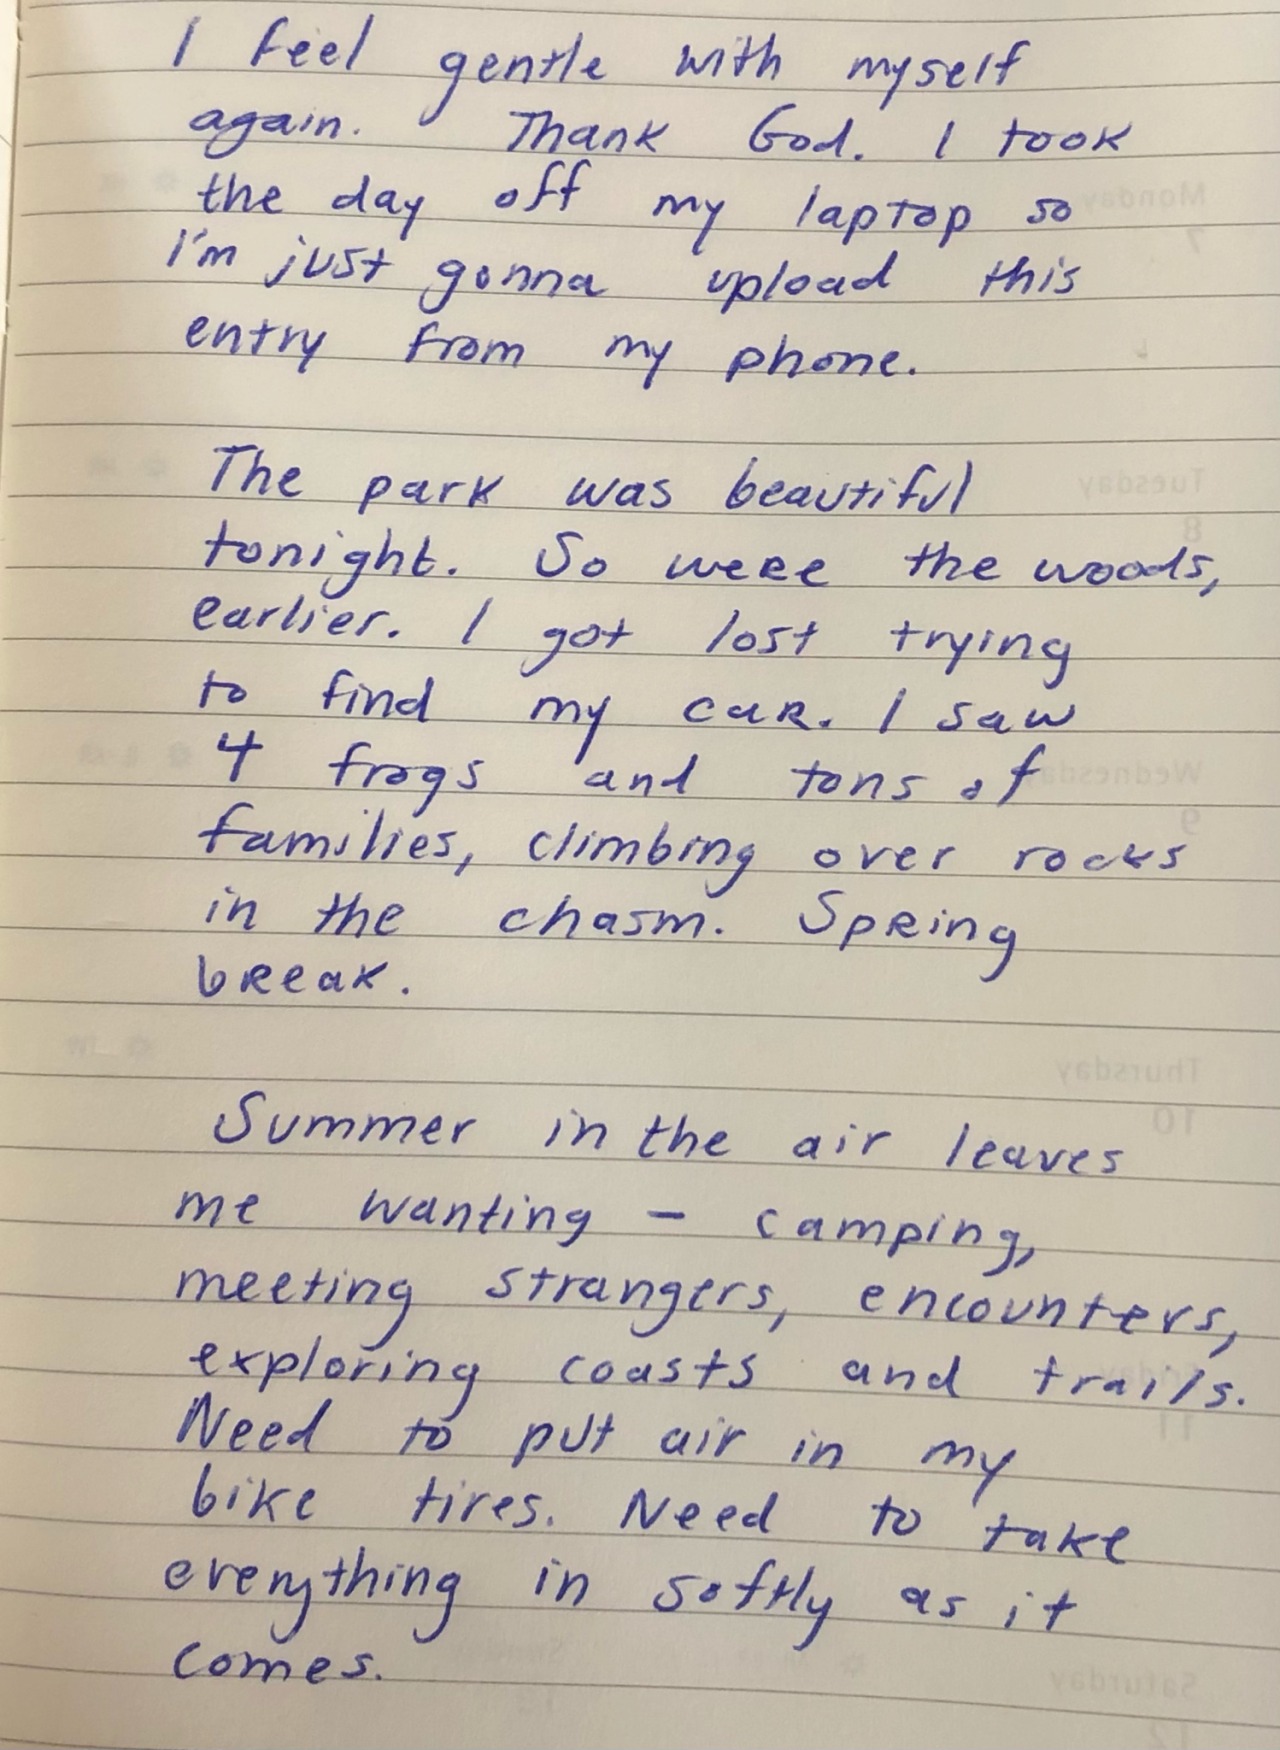 I feel gentle with myself
again. Thank God. I took
the day off my laptop so
I'm just gonna upload this
entry from my phone.
The park was beautiful
tonight. So were the woods,
earlier. I got lost trying
to find my car. I saw
4 frogs and tons of
families, climbing over rocks
in the chasm. Spring
break.
Summer in the air leaves
me wanting - camping,
meeting strangers, encounters,
exploring coasts and trails.
Need to put air in my
bike tires. Need to take
everything in softly as it
comes.
Monday
7
Tuesday
8
Wednesday
9
Thursday
10
Friday
11
Saturday
12
Sunday